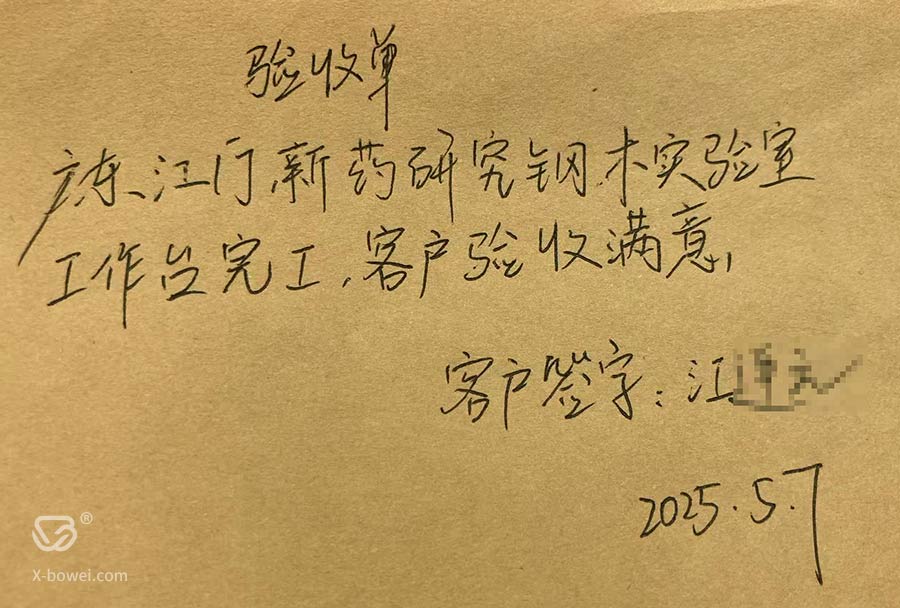 验收单
广东江门新药研究钢木实验室
工作台完工,客户验收满意,
客户签字:江
2025.5.7
®
X-bowei.com